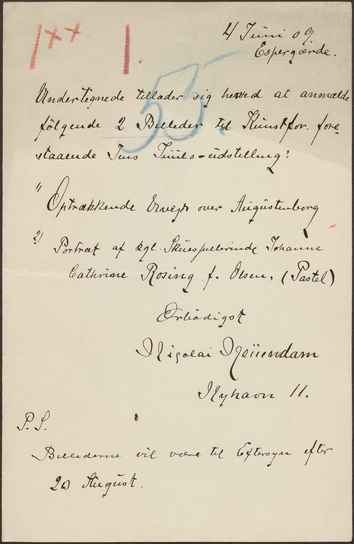 4 Juni 09.
Espergærde.
1++ 1.
55.
Undertegnede tillader sig herved at anmelde
følgende 2 Billeder til Kunstfor. fore
staaende Juni-udstilling:
1) Optrækkende Uvejr over Augustenborg
2) Portræt af kgl. Skuespillerinde Johanne
Cathrine Rosing f. Olsen. (Pastel)
Ærbødigst
Nicolai
Nyhavn 11.
P.S.
Billederne vil være til Eftersyn efter
20 August.